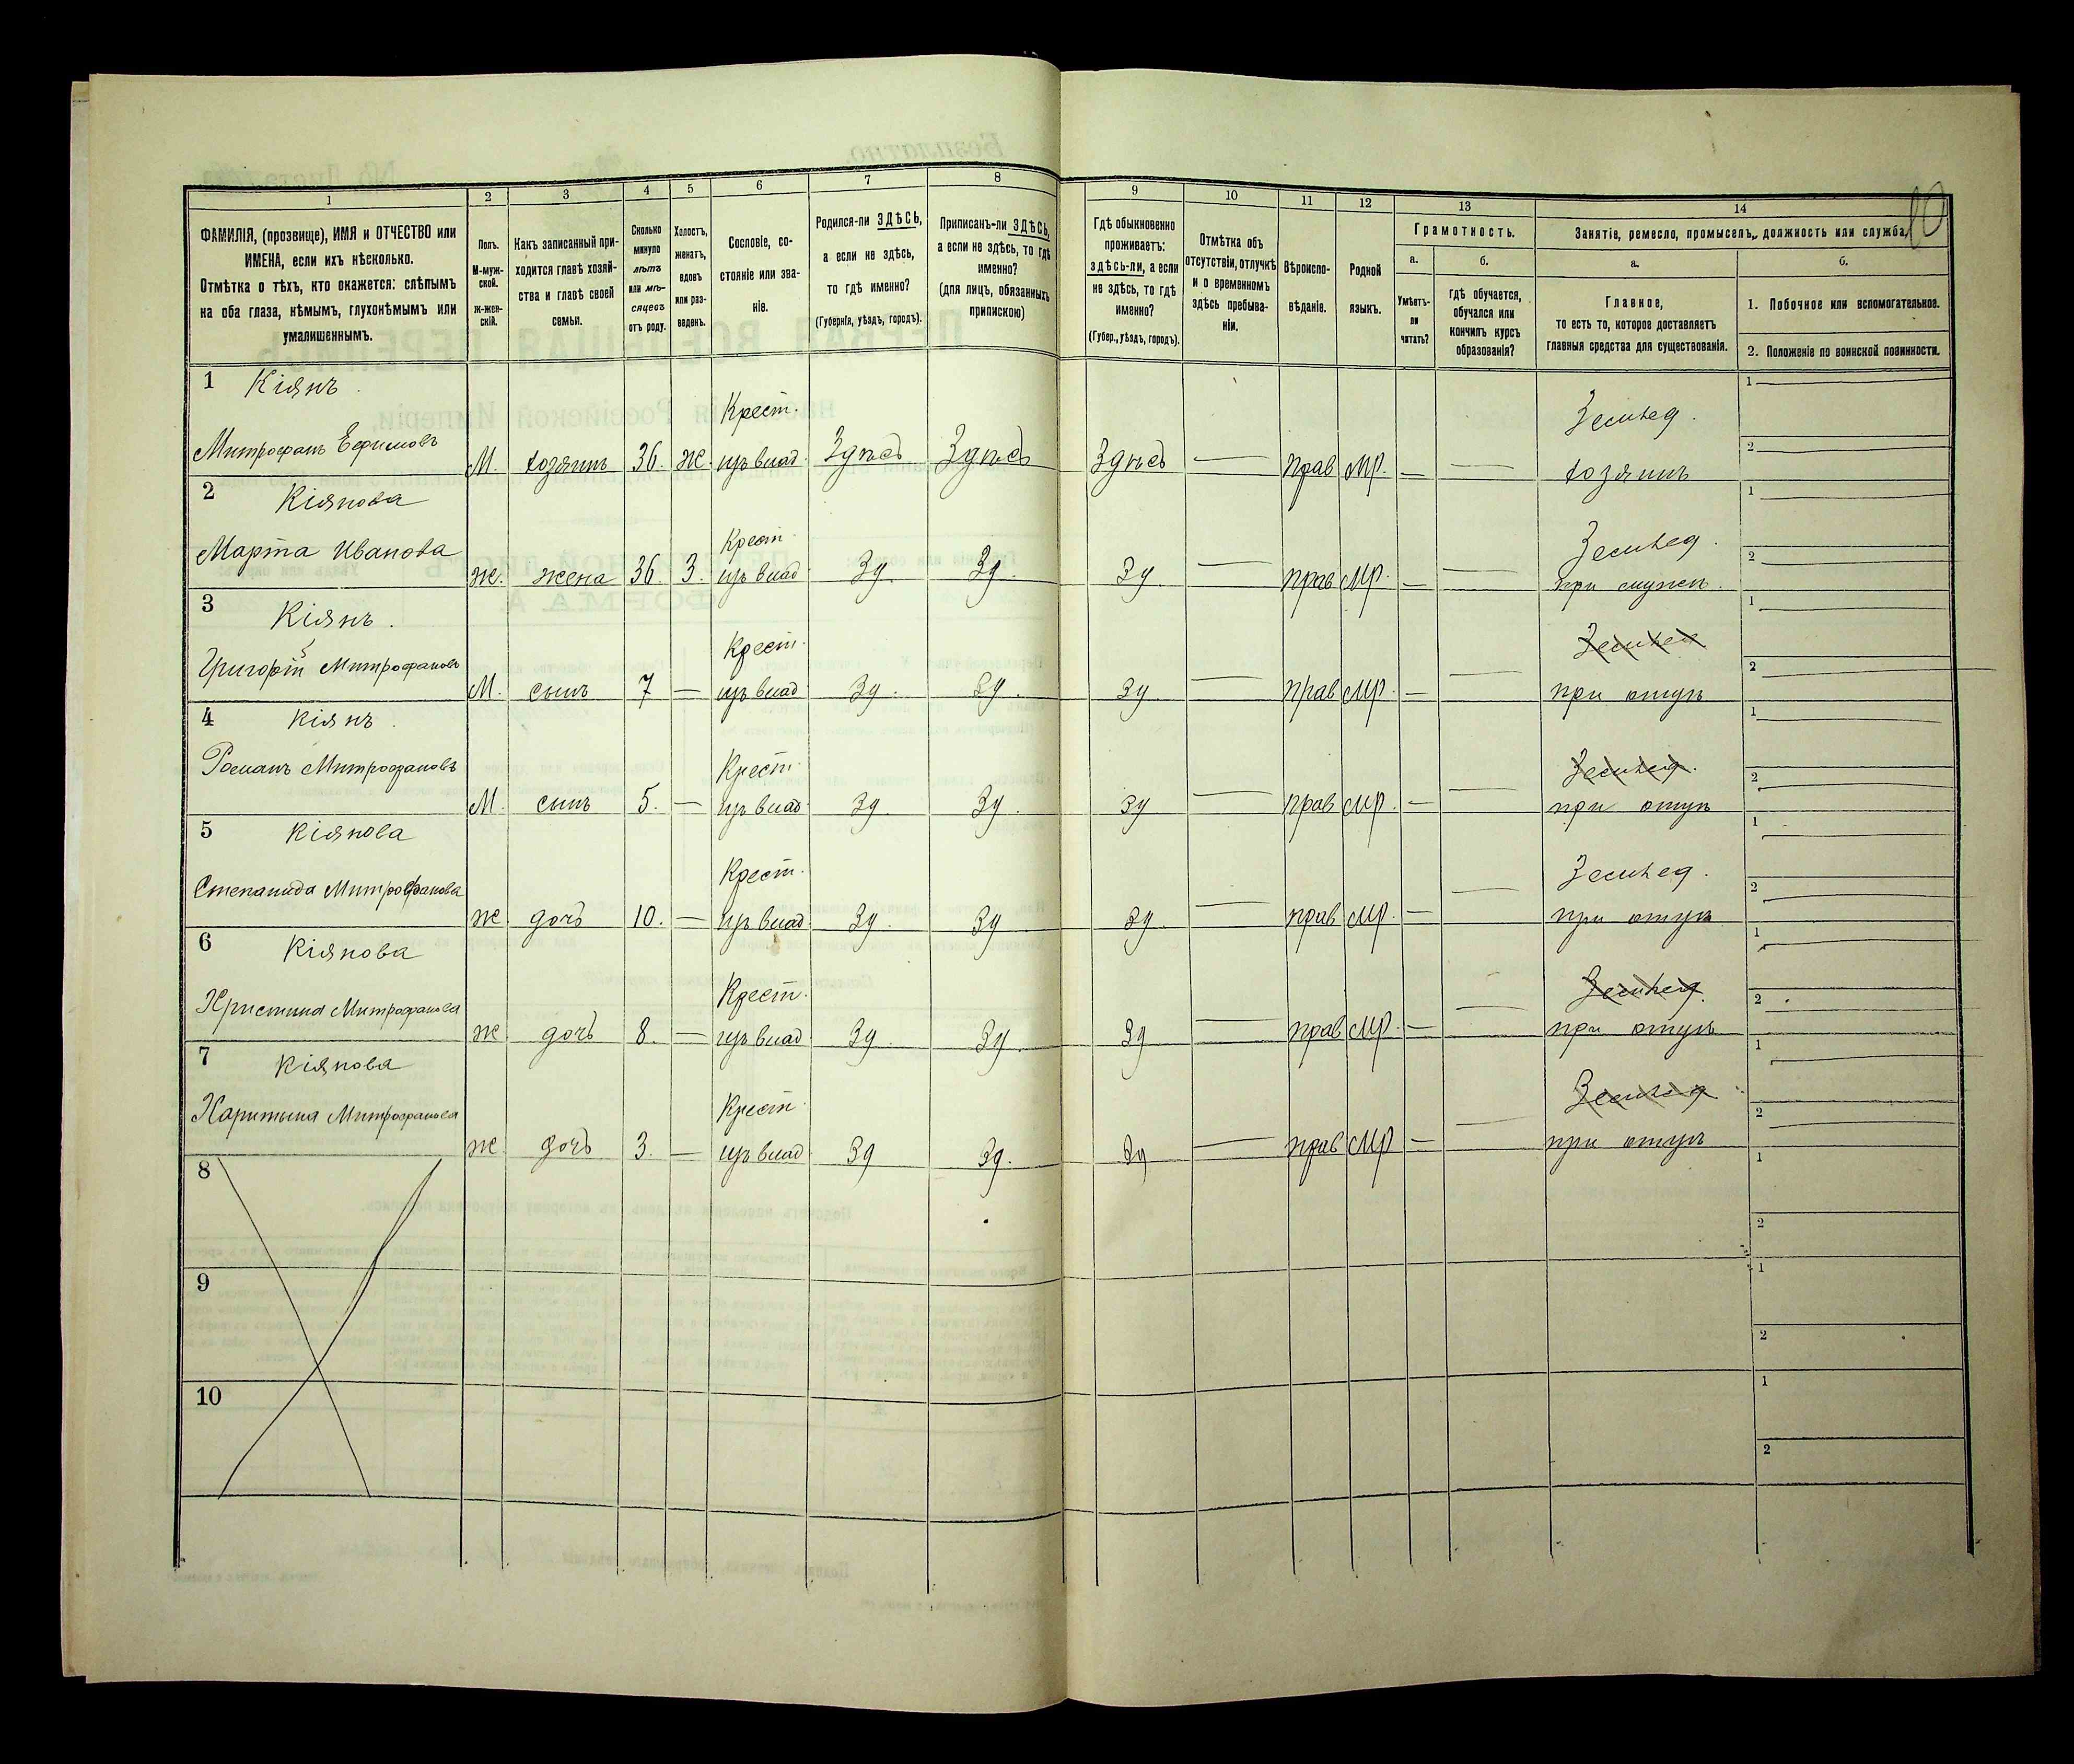 10
1 2 3 4 5 6 7 8 9 10 11 12 13 14
ФАМИЛІЯ, (прозвище), ИМЯ и ОТЧЕСТВО или ИМЕНА, если ихъ нѣсколько.
Отмѣтка о тѣхъ, кто окажется: слѣпымъ на оба глаза, нѣмымъ, глухонѣмымъ или умалишеннымъ.
Полъ. М-муж-ской. Ж-жен-скій.
Какъ записанный при-ходится главѣ хозяй-ства и главѣ своей семьи.
Сколько минуло лѣтъ или мѣ-сяцевъ отъ роду.
Холостъ, женатъ, вдовъ или раз-веденъ.
Сословіе, со-стояніе или зва-ніе.
Родился-ли ЗДѢСЬ, а если не здѣсь, то гдѣ именно? (Губернія, уѣздъ, городъ).
Приписанъ-ли ЗДѢСЬ, а если не здѣсь, то гдѣ именно? (для лицъ, обязанныхъ припискою)
Гдѣ обыкновенно проживаетъ: здѣсь-ли, а если не здѣсь, то гдѣ именно? (Губер., уѣздъ, городъ).
Отмѣтка объ отсутствіи, отлучкѣ и о временномъ здѣсь пребыва-ніи.
Вѣроиспо-вѣданіе.
Родной языкъ.
Грамотность.
а. Умѣетъ-ли читать?
б. гдѣ обучается, обучался или кончилъ курсъ образованія?
Занятіе, ремесло, промыселъ, должность или служба.
а. Главное, то есть то, которое доставляетъ главныя средства для существованія.
б. 1. Побочное или вспомогательное.
2. Положеніе по воинской повинности.
1 Кіянъ. Крест. Землед. 1
Митрофанъ Ефимовъ М. хозяинъ 36. ж. изъ влад. Здѣсь Здѣсь Здѣсь — прав мр. — — хозяинъ 2
2 Кіянова Крест. Землед. 1
Марта Иванова ж. жена 36. З. изъ влад Зд. Зд. Зд. — прав мр. — — при мужѣ. 2
3 Кіянъ. Крест. Землед 1
Григорій Митрофановъ М. сынъ 7 — изъ влад Зд. Зд. Зд — прав мр. — — при отцѣ 2
4 Кіянъ. Крест. Землед. 1
Романъ Митрофановъ М. сынъ 5. — изъ влад. Зд. Зд. Зд — прав мр. — — при отцѣ 2
5 Кіянова Крест. Землед. 1
Степанида Митрофанова ж. дочь 10. — изъ влад. Зд. Зд Зд — прав мр. — — при отцѣ 2
6 Кіянова Крест. Землед. 1
Христина Митрофанова ж дочь 8. — изъ влад. Зд. Зд. Зд — прав мр. — — при отцѣ 2
7 Кіянова Крест. Землед. 1
Харитина Митрофанова ж дочь 3. — изъ влад Зд Зд. Зд — прав мр — — при отцѣ 2
8 1
2
9 1
2
10 1
2